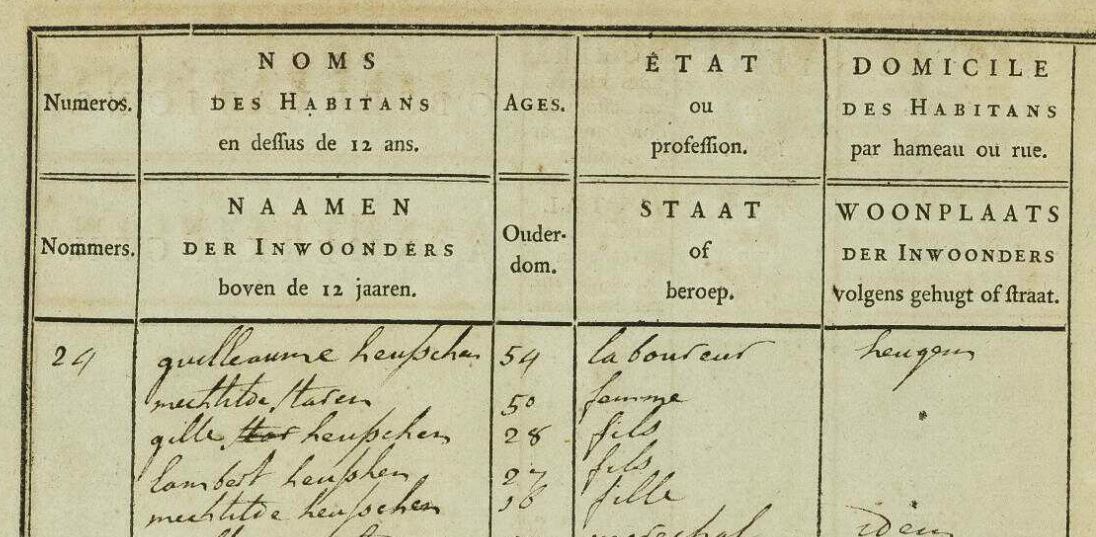 Numeros.
NOMS
DES HABITANS
en dessus de 12 ans.
AGES.
ÉTAT
ou
profession.
DOMICILE
DES HABITANS
par hameau ou rue.
Nommers.
NAAMEN
DER INWOONDERS
boven de 12 jaaren.
Ouder-
dom.
STAAT
of
beroep.
WOONPLAATS
DER INWOONDERS
volgens gehugt of straat.
24 guilleaume heusschen 54 laboureur heugem
mechtilde staren 50 femme
gille heusschen 28 fils
lambert heusshen 27 fils
mechtilde heusschen 18 fille
idem